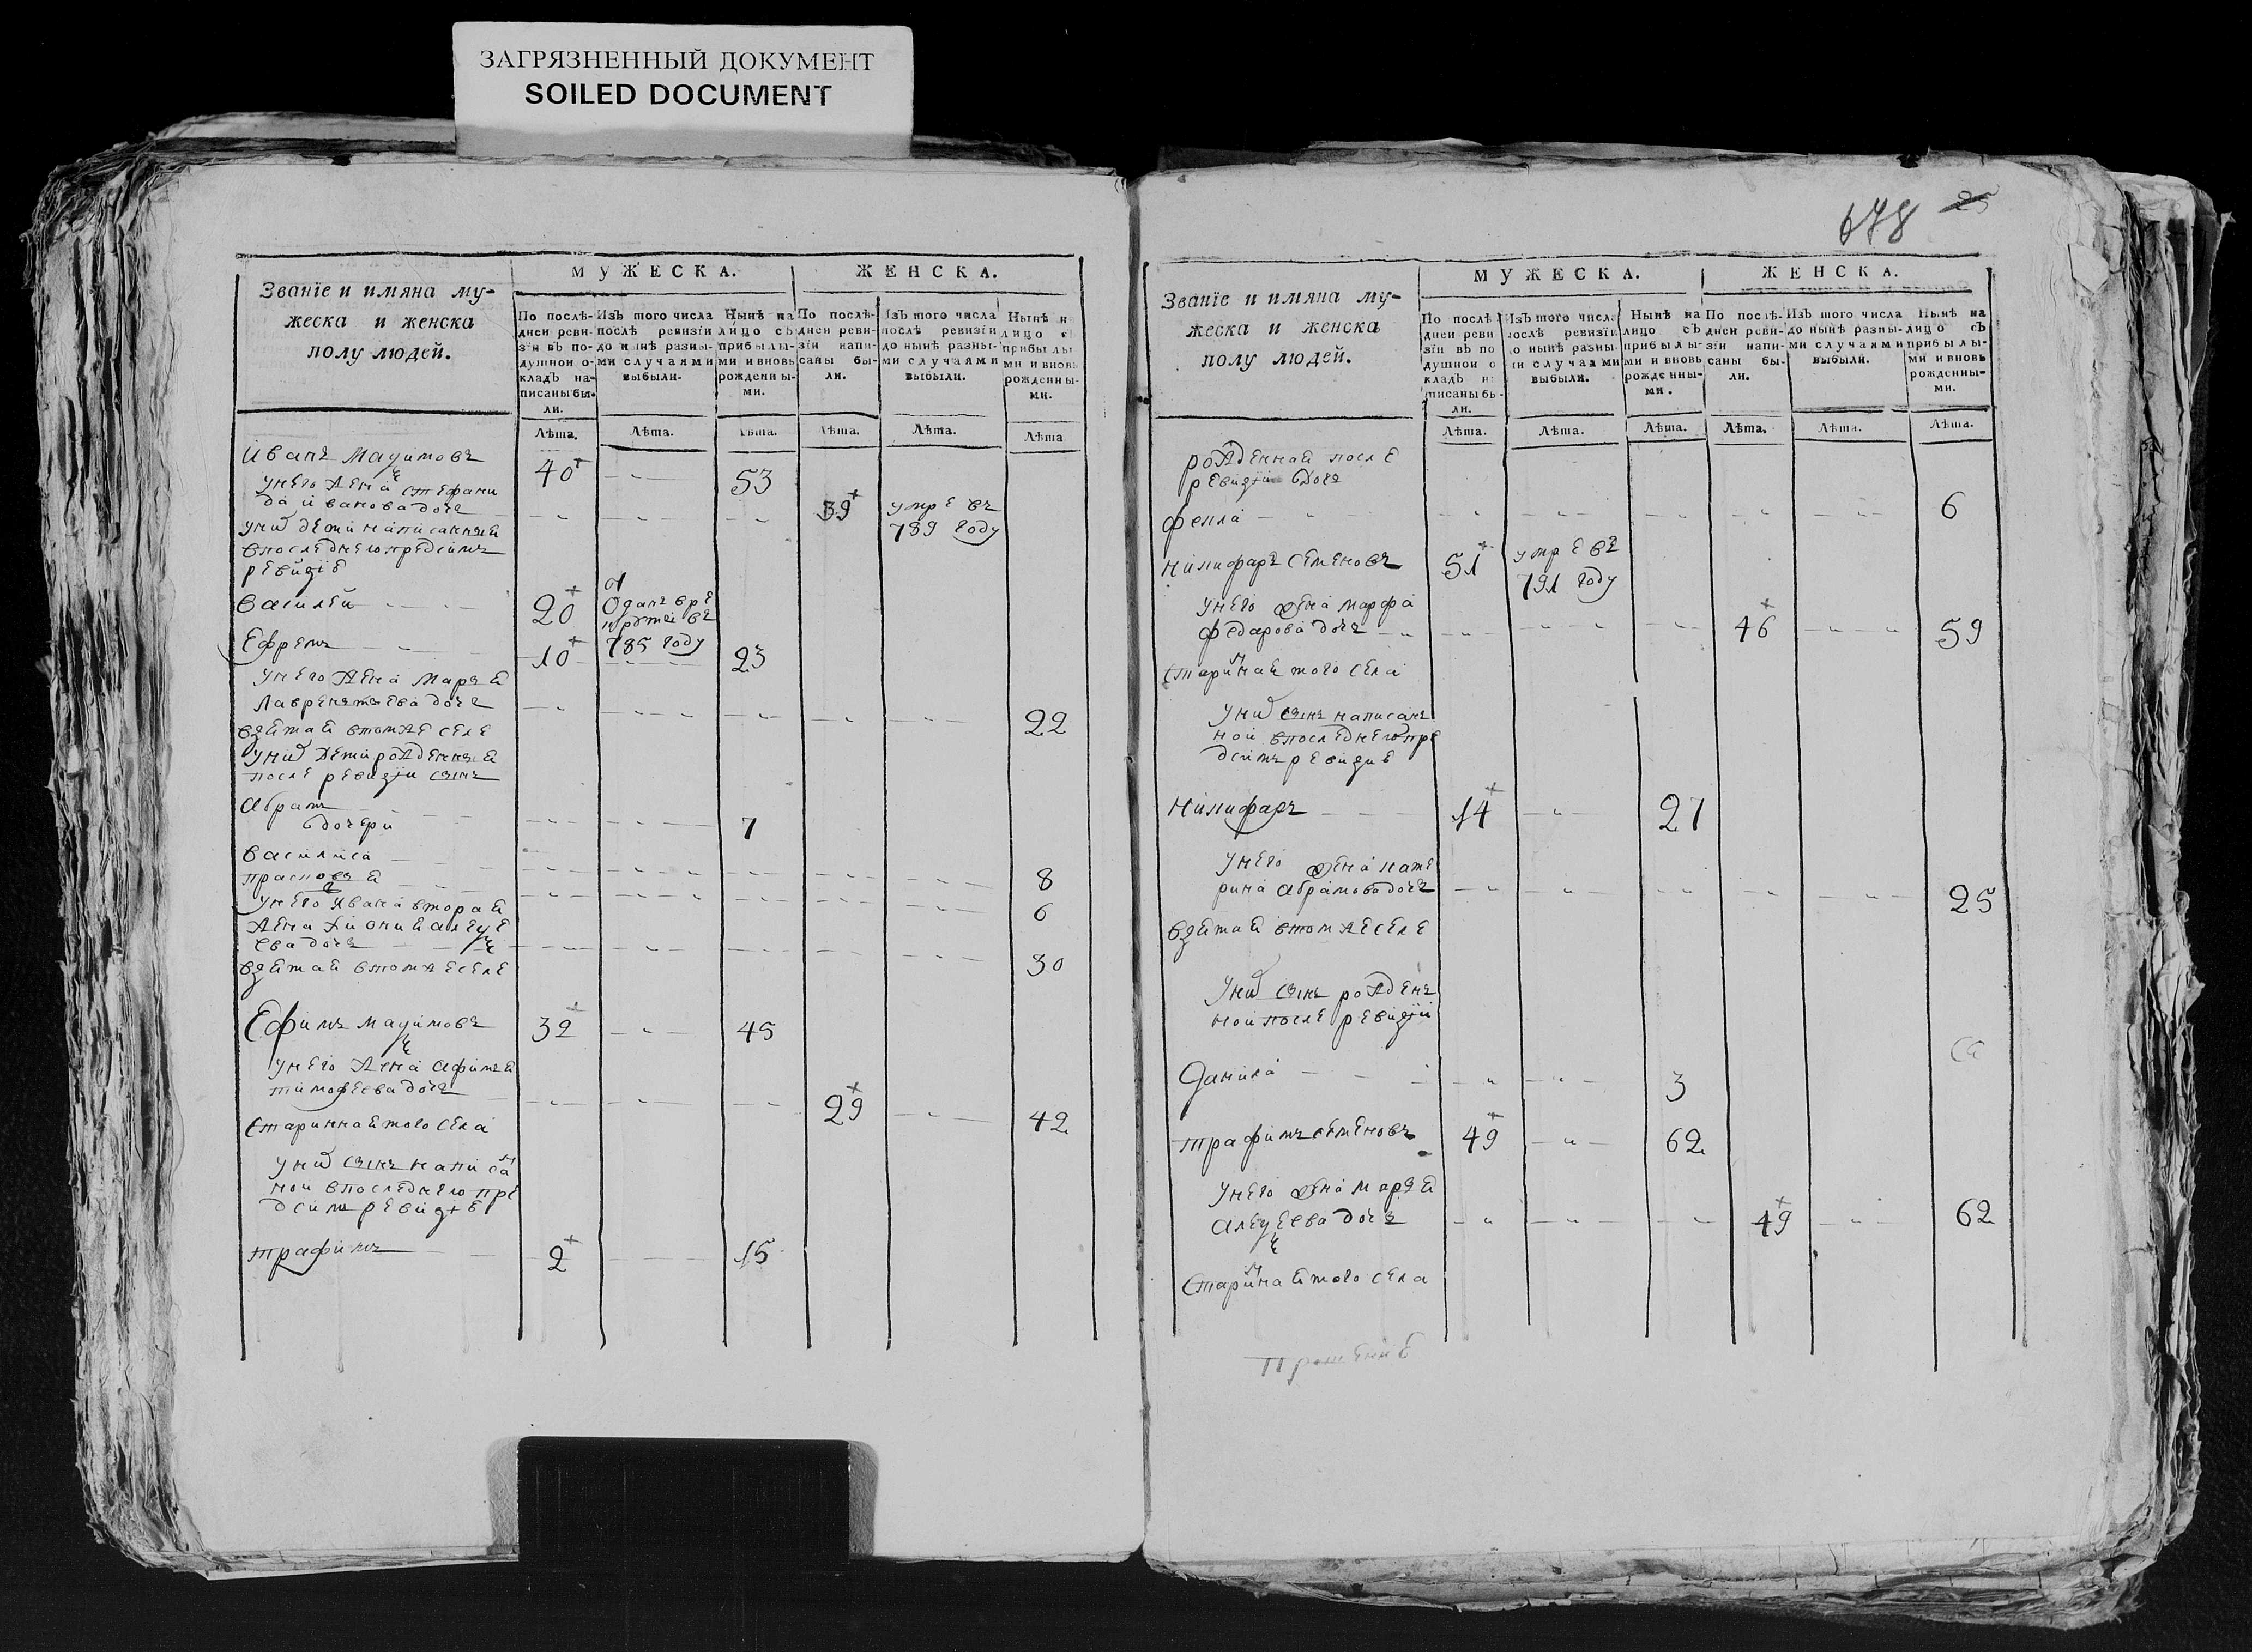 ЗАГРЯЗНЕННЫЙ ДОКУМЕНТ
SOILED DOCUMENT
Званїе и имяна му-
жеска и женска
полу людей.
МУЖЕСКА.
ЖЕНСКА.
По послѣ-
дней реви-
зїи въ по-
душной о-
кладъ на-
писаны бы-
ли.
Изъ того числа
послѣ ревизїи
до нынѣ разны-
ми случаями
выбыли.
Нынѣ на
лицо съ
прибылы-
ми и вновь
рожденны-
ми.
По послѣ-
дней реви-
зїи напи-
саны бы-
ли.
Изъ того числа
послѣ ревизїи
до нынѣ разны-
ми случаями
выбыли.
Нынѣ н
лицо съ
прибылы
ми и вновь
рожденны-
ми.
Лѣта. Лѣта. Лѣта. Лѣта. Лѣта. Лѣта
иванъ мазимовъ 40 53
унего жена стефани
да иванова дочь 39 умре въ
789 году
уних дети написанные
впоследнею пред симъ
ревизїе
василеи 20
отданъ вре
крути въ
785 году
Ефремъ 10 23
унего жена марья
лаврентьева дочь 22
взятая втомже селе
уних дети рожденные
после ревизїи сынъ
абрамъ 7
дочери
василиса 8
прасковья 6
унего ивана вторая
жена
ева дочь 30
взятая втомже селе
Ефимъ 32 45
унего жена афимья
тимофеева дочь 29 42
Старинная того села
уних сынъ написа
ной впоследнею пре
дсимъ ревизїе
трафимъ 2 15
678 25
Званїе и имяна му-
жеска и женска
полу людей.
МУЖЕСКА.
ЖЕНСКА.
По послѣ
дней реви
зїи въ по
душной о
кладъ н
писаны бы-
ли.
Изъ того числа
послѣ ревизїи
до нынѣ разны
ми случаями
выбыли.
Нынѣ на
лицо съ
прибылы-
ми и вновь
рожденны-
ми.
По послѣ-
дней реви-
зїи напи-
саны бы-
ли.
Изъ того числа
до нынѣ разны-
ми случаями
выбыли.
Нынѣ на
лицо съ
прибылы-
ми и вновь
рожденны-
ми.
Лѣта. Лѣта. Лѣта. Лѣта. Лѣта. Лѣта.
рожденная после
ревизїи дочь
фекла 6
никифаръ семеновъ 51 умре въ
791 году
унего жена марфа
федарова дочь 46 59
старинная того села
уних сынъ написанъ
ной впоследнею пре
дсимъ ревизие
никифаръ 14 27
унего жена кате
рина абрамова дочь 25
взятая втомже селе
уних сынъ рожденъ
ной после ревизїи
данила 3
трафимъ семеновъ 49 62
унего жена марья
дочь 49 62
Старинная того села